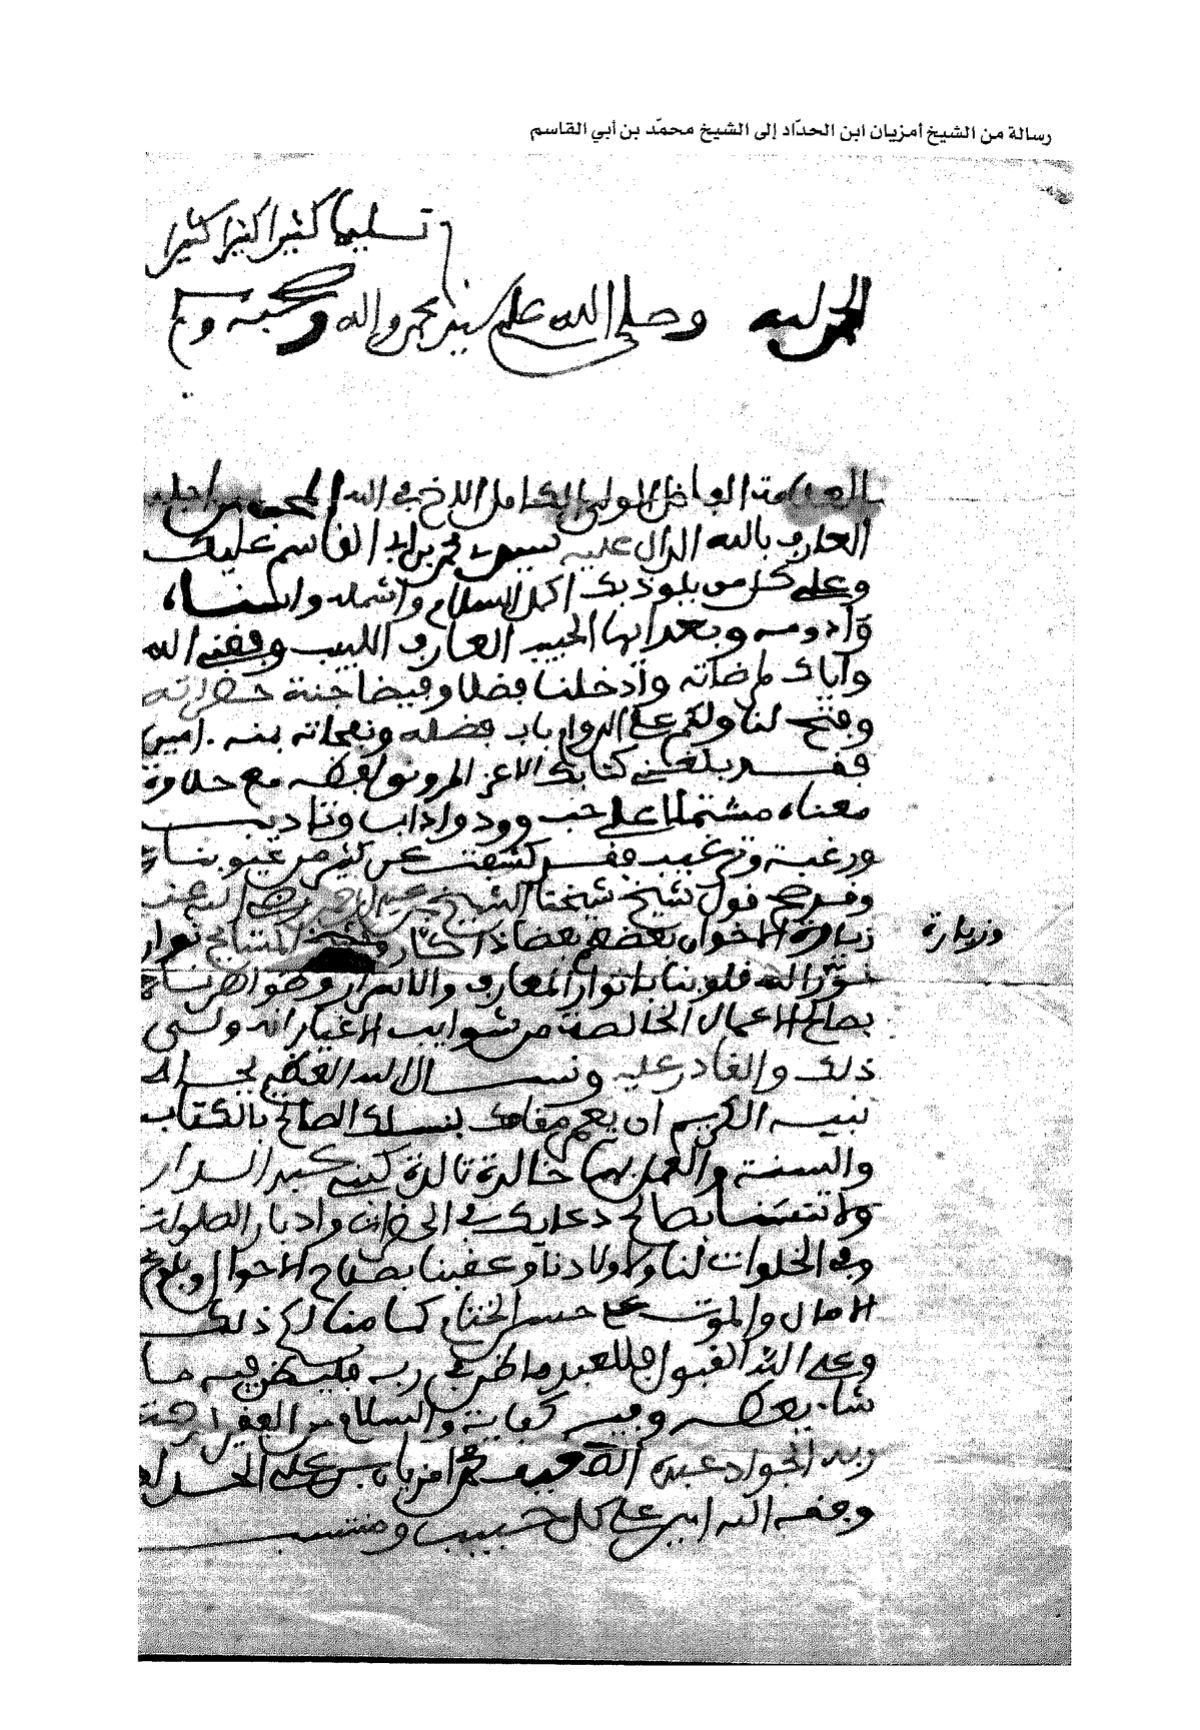 رسالة من الشيخ أمزيان ابن الحدّاد إلى الشيخ محمّد بن أبي القاسم
تسليما كثيرا كثيرا كثيرا
الحمد لله وصلى الله على سيدنا محمد وءاله وصحبه وسلم
العلامة الفاضل المولى الكامل الاخ في الله المحب من اجله
العارف بالله الدال عليه سيدي محمد بن ابي القاسم عليك
وعلى كل من يلوذ بك اكمل السلام واشمله واسناه
وادومه وبعد ايها الحبيب العارف اللبيب وفقني الله
واياك لمرضاته وادخلنا فضلا وفيضا جنة حضراته
وفتح لنا ولكم على الدوام باب فضله ونفحاته بمنه . امين
فقد بلغني كتابك الاعز المرونق لفظه مع حلاوة
معناه مشتملا على حب وود واداب وتاديب
ورغبة وترغيب فقد كشفت عن كثير من عيوبنا
وقد صح قول شيخ شيخنا الشيخ رضي الله عنه
زيارة الاخوان بعضهم بعضا تذكار المشايخ انوار
وزيارة
نور الله قلوبنا بانوار المعارف والاسرار وظواهرنا
بصالح الاعمال الخالصة من شوايب الاغيار انه ولي
ذلك والقادر عليه ونسال الله العظيم بجاه
نبيه الكريم ان يعمر مقامك بنسلك الصالح بالكتاب
والسنة والعمل بهما خالدة تالدة
ولا تنسنا بصالح دعايك في الحضرات وادبار الصلوات
وفي الخلوات لنا ولاولادنا وعقبنا بصلاح الاحوال وبلوغ
الامال والموت على حسن الختام كما منا لكم ذلك
وعلى الله القبول فللعبد ما ظن في ربه فليظن فيه ما
شاء يعطه وفيه كفاية والسلام من الفقير
ربه الجواد عبده الضعيف محمد امزيان بن علي الحداد
وفقه الله امين على كل حبيب ومنتسب